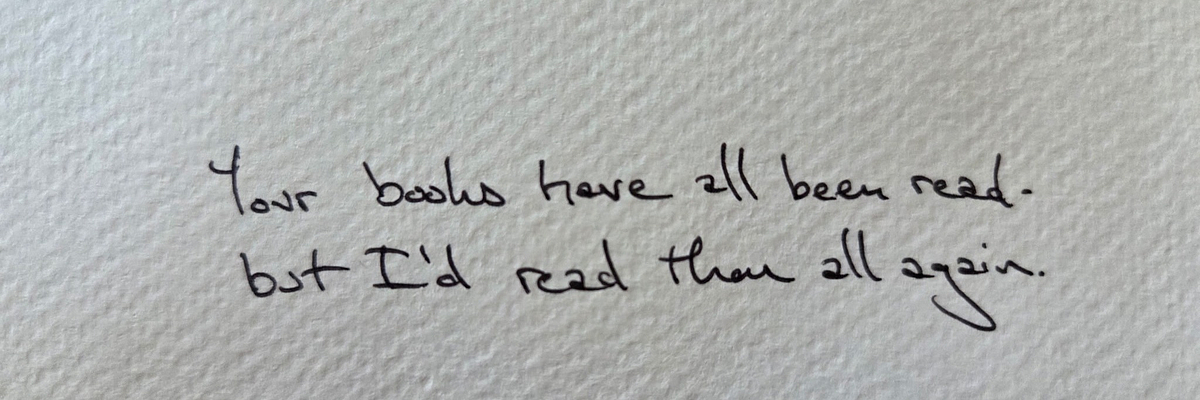 Your books have all been read.
but I'd read them all again.